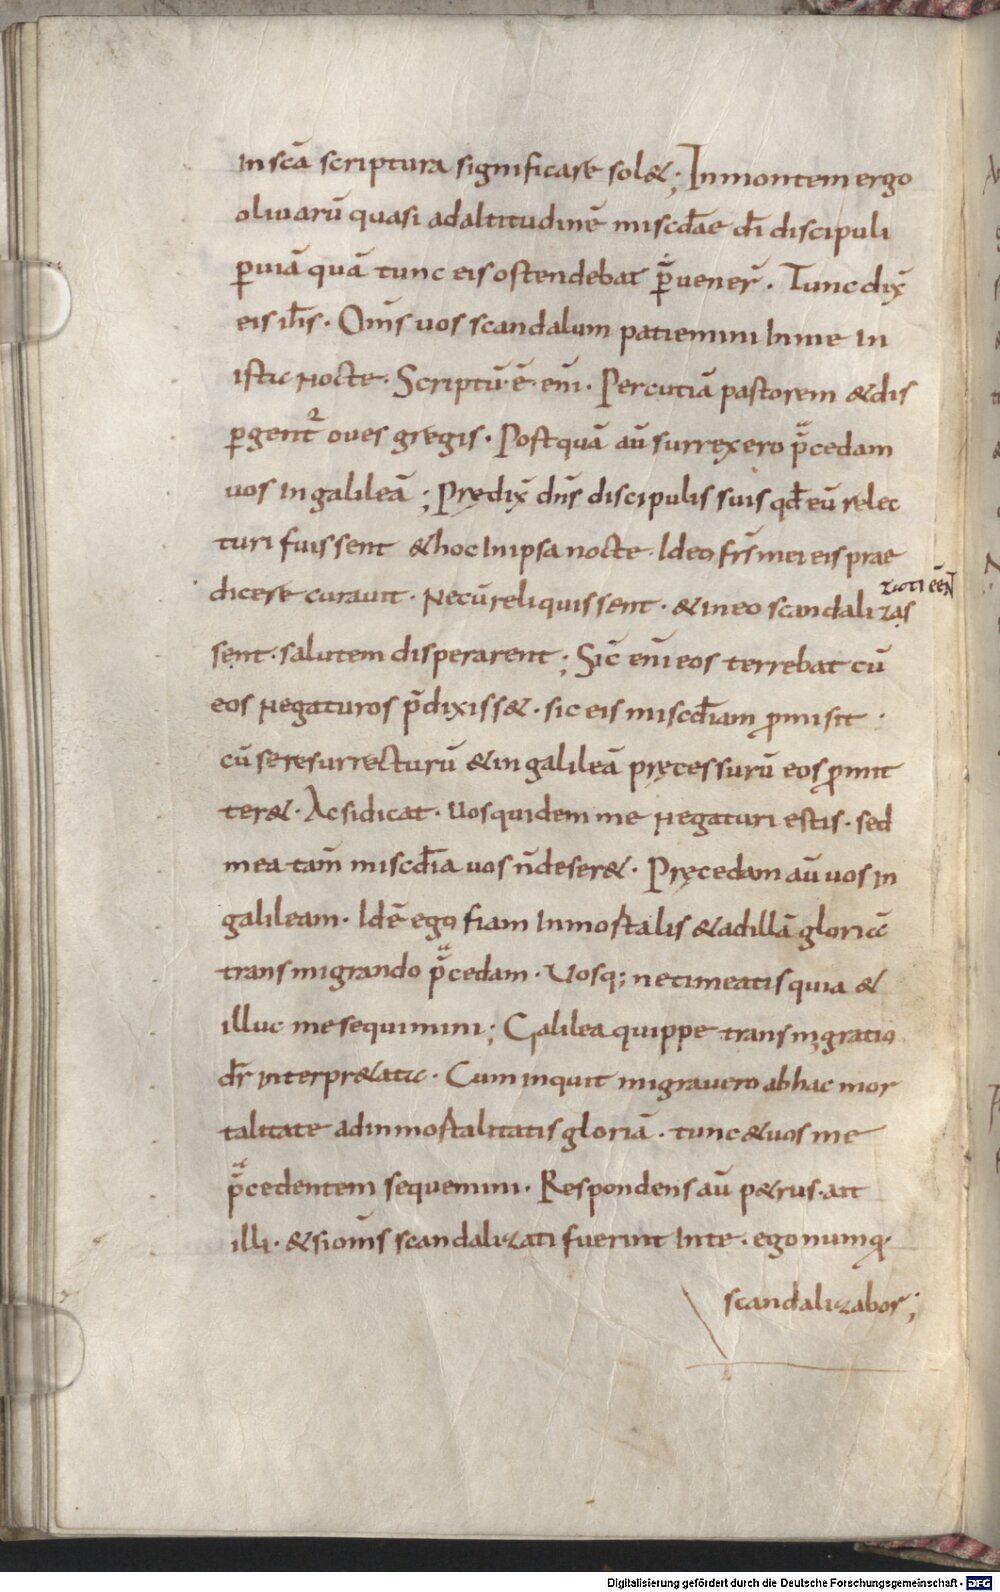 In scā scriptura significare sol&; Inmontem ergo
oliuarū quasi adaltitudinē miscđae dī discipuli
ꝑuiā quā tunc eis ostendebat ꝑuener̄. Tunc dix̄
eis ih̄s. Om̄s uos scandalum patiemini In me In
ista nocte. Scriptū·ē·eni̅. Percutiā pastorem &dis
ꝑgent᷑ oues gregis. Postquā aū surrexero p̄cedam
uos In galileā; Prędix̄ dn̄s discipulis suis qđ eū relec
turi fuissent &hoc In ipsa nocte. Ideo fr̄s mei eis prae
zati eēN̄
dicere curauit. Necū reliquissent. & In eo scandalizas
sent. salutem disperarent; Sic̄ eni̅ eos terrebat cū
eos Negaturos p̄dixiss&. sic eis miscđiam ꝓmisit.
cū se resurrecturū & In galileā pręcessurū eos ꝓmit
ter&. Ac si dicat. Uos quidem me Negaturi estis. sed
mea tam̄ miscđia uos n̄deser&. Pręcedam aū uos In
galileam. Idē ego fiam Inmortalis &adillā gloriā
transmigrando p̄cedam. Uosq; ne timeatis quia &
illuc me sequimini; Galilea quippe transmigratio
dr̄ interpr&ata. Cum inquit migrauero abhac mor
talitate adinmortalitatis gloriā. tunc &uos me
p̄cedentem sequemini. Respondens aū p&rus. ait
illi. &si om̄s scandalizati fuerint In te. ego numq̄
scandalizabor;
Digitalisierung gefördert durch die Deutsche Forschungsgemeinschaft - DFG